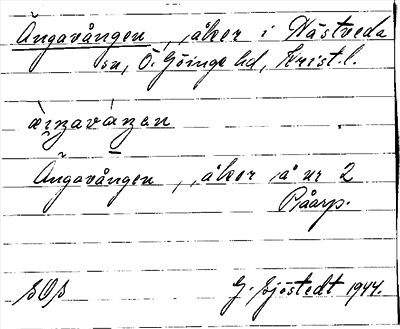 Ängavången, åker i Nästveda
sn, Ö. Göinge hd, Krist. l.
Ängavången, åker å nr 2
Råarp.
G. Sjöstedt 1944.